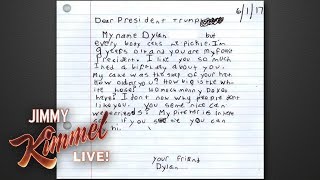 6/1/17
Dear President Trump
My name Dylan but
every body cals me pickle. I'm
9 years old and you are my favorite
President. I like you so much
I had a birthday about you.
My cake was the shape of your hat.
How old are you? How big is the wh
ite house? How much money do you
have? I don't now why people don't
like you. You seme nice can
we be friends? My picter is in here
so if you see me you can
hi.
your friend
Dylan
JIMMY
Kimmel
LIVE!